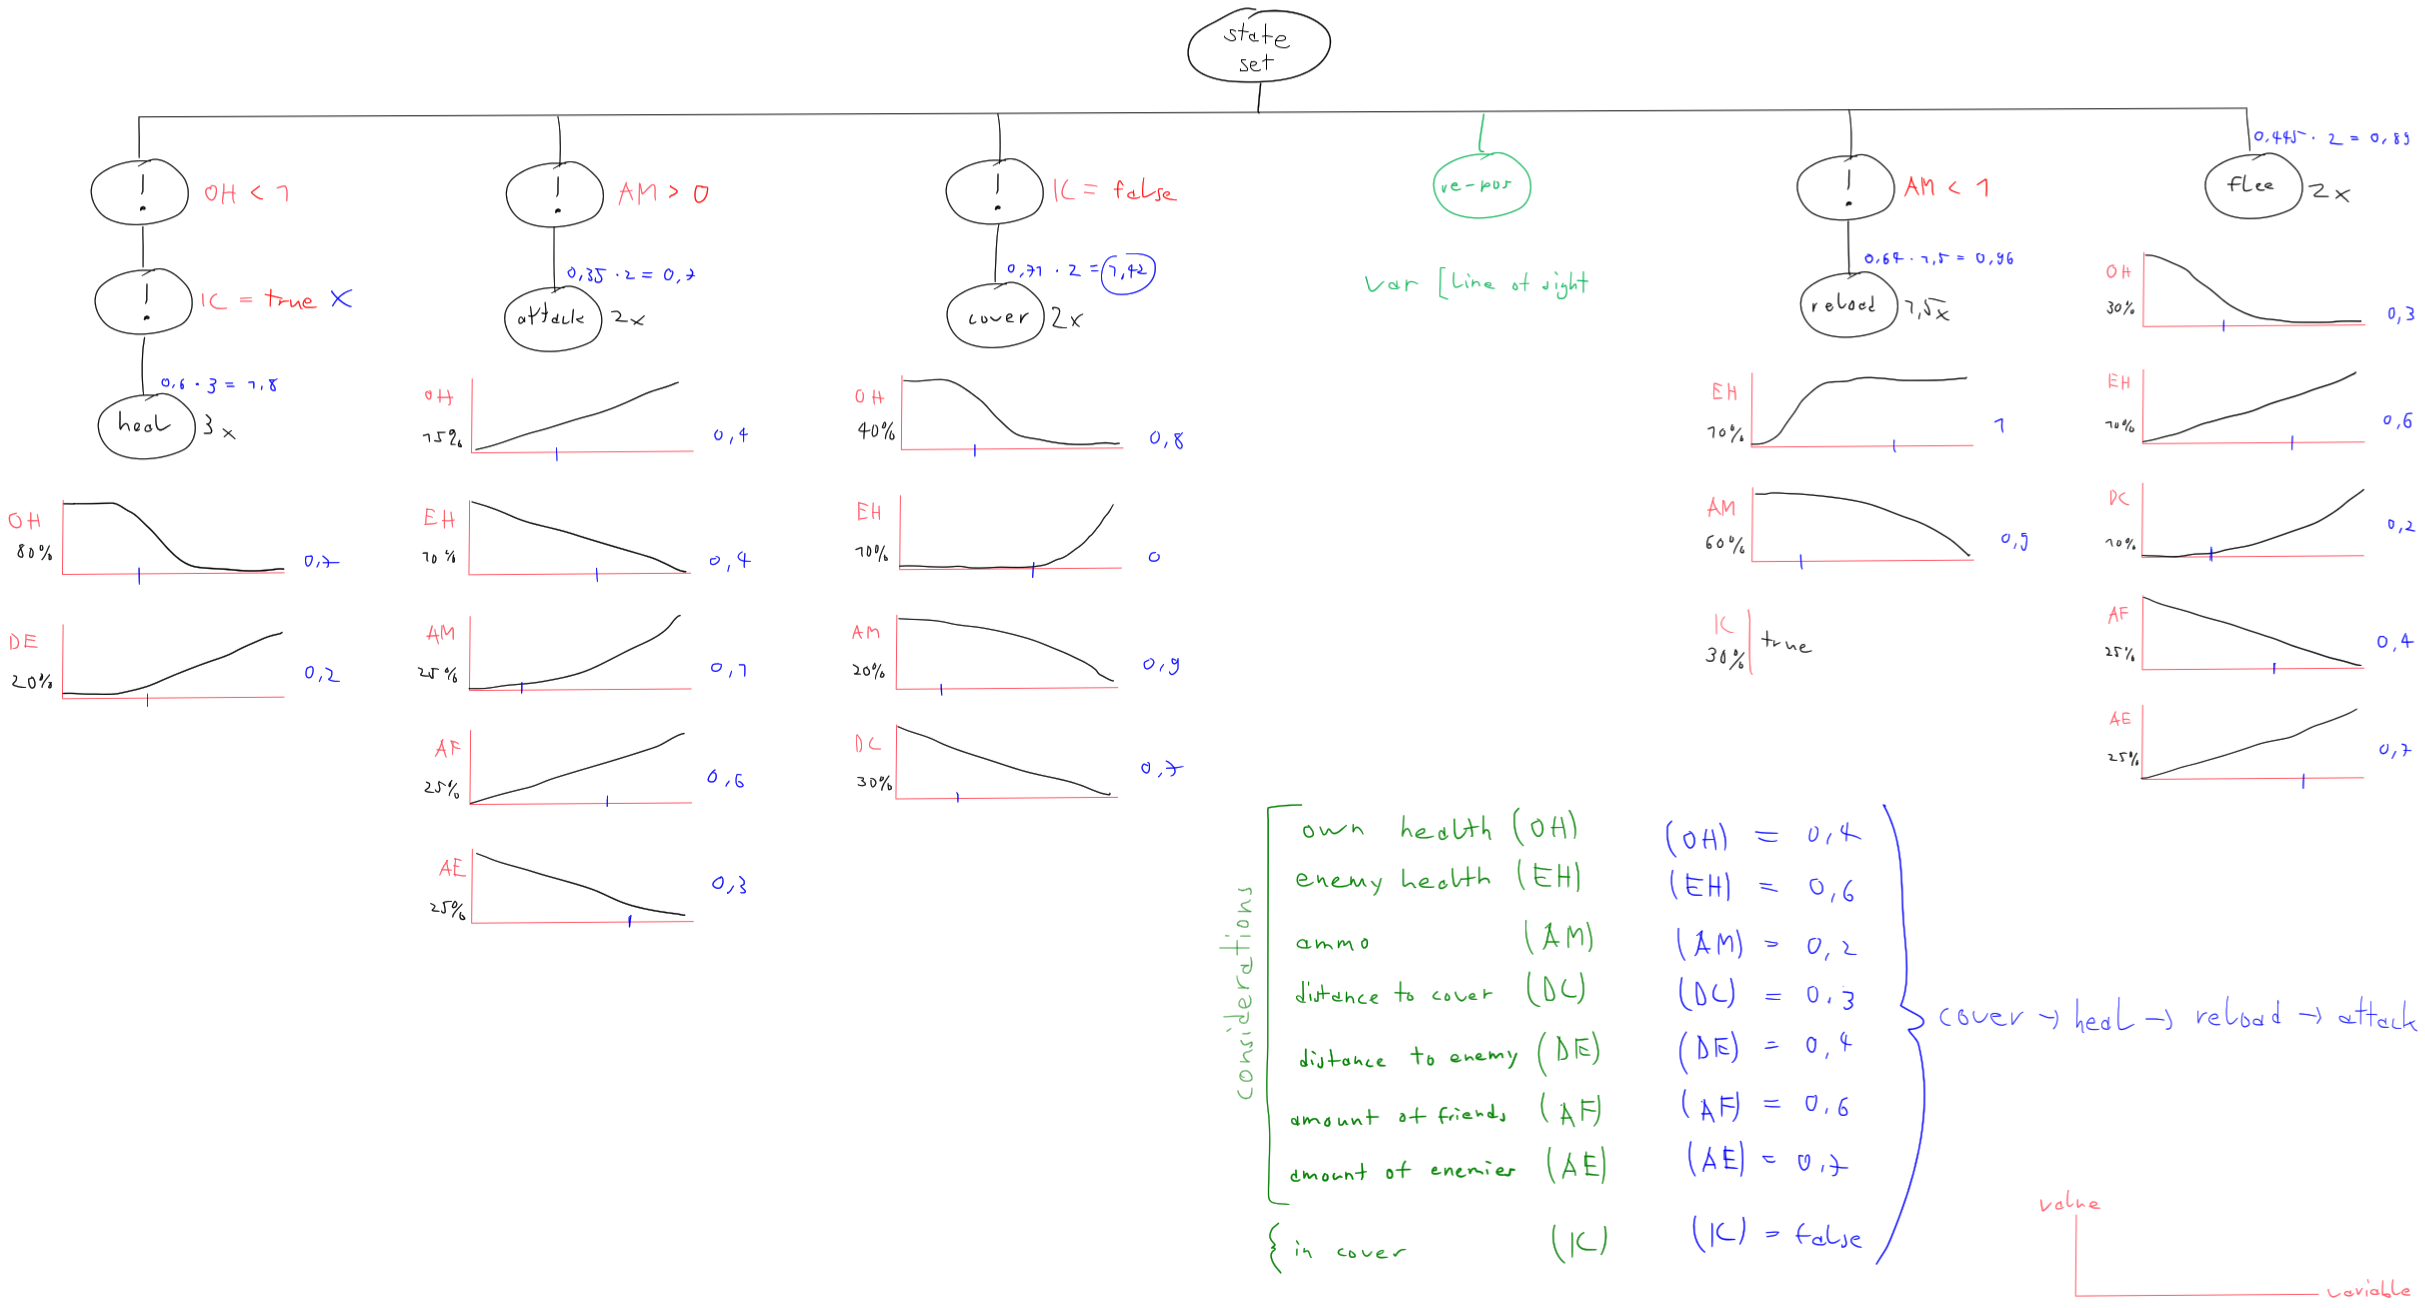 state
set
!
OH < 1
!
IC = true X
0,6 · 3 = 1,8
heal 3x
OH
80%
0,7
DE
20%
0,2
!
AM > 0
0,35 · 2 = 0,7
attack 2x
OH
15%
0,4
EH
10%
0,4
AM
25%
0,1
AF
25%
0,6
AE
25%
0,3
!
IC = false
0,71 · 2 = 1,42
cover 2x
OH
40%
0,8
EH
10%
0
AM
20%
0,9
DC
30%
0,7
re-pos
var [Line of sight
!
AM < 1
0,64 · 1,5 = 0,96
reload 1,5x
EH
10%
1
AM
60%
0,9
IC
30%
true
0,445 · 2 = 0,89
flee 2x
OH
30%
0,3
EH
10%
0,6
DC
10%
0,2
AF
25%
0,4
AE
25%
0,7
considerations
own health (OH) (OH) = 0,4
enemy health (EH) (EH) = 0,6
ammo (AM) (AM) = 0,2
distance to cover (DC) (DC) = 0,3
distance to enemy (DE) (DE) = 0,4
amount of friends (AF) (AF) = 0,6
amount of enemies (AE) (AE) = 0,7
in cover (IC) (IC) = false
cover → heal → reload → attack
value
variable